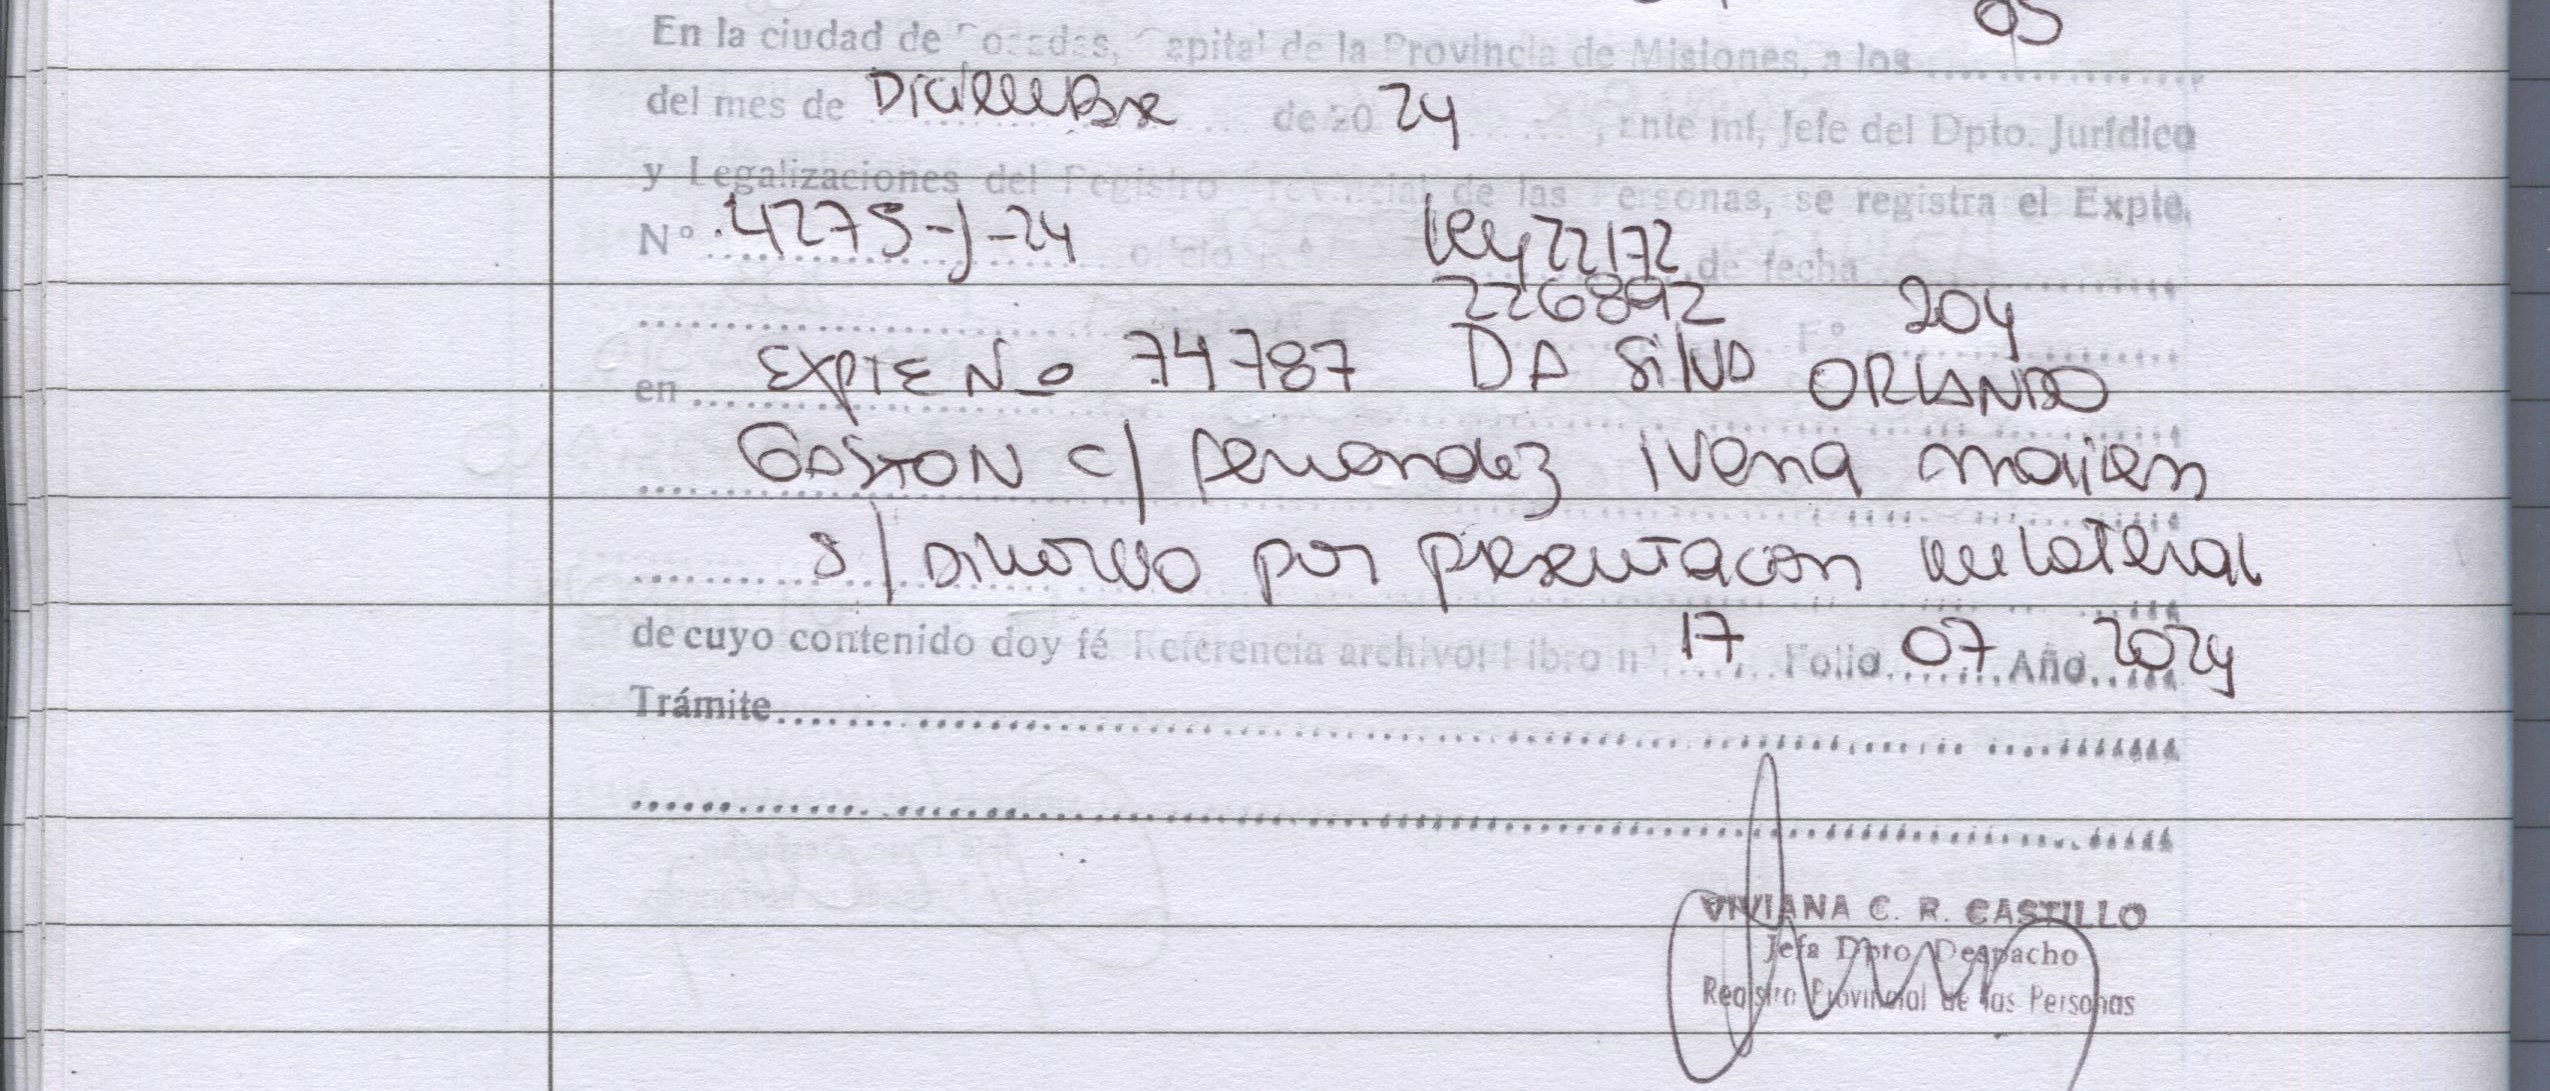 05
En la ciudad de Posadas, Capital de la Provincia de Misiones, a los
del mes de Diciembre de 20 24, ante mí, Jefe del Dpto. Jurídico
y Legalizaciones del Registro Provincial de las Personas, se registra el Expte.
Nº 4275-J-24 oficio nº Ley 22172 de fecha
226892 Fº 204
en EXPTE Nº 74787 DA SILVA ORLANDO
GASTON c/ Fernandez ivena mailen
s/ DIVORCIO por presentacon unilateral
de cuyo contenido doy fé Referencia archivo: Libro nº 17 Folio 07 Año 2024
Trámite
VIVIANA C. R. CASTILLO
Jefa Dpto Despacho
Registro Provincial de las Personas